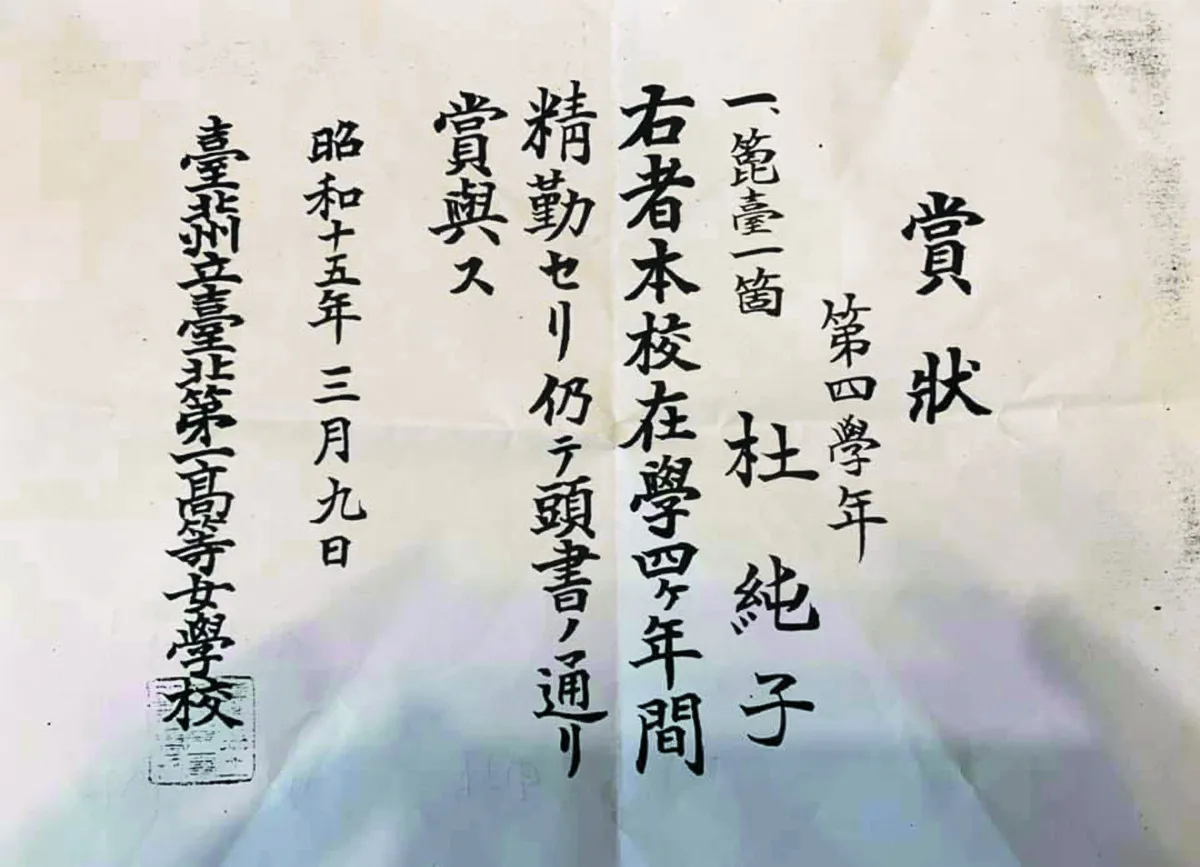 賞狀
第四學年
杜純子
一、箆臺一箇
右者本校在學四ヶ年間
精勤セリ仍テ頭書ノ通リ
賞與ス
昭和十五年三月九日
臺北州立臺北第一高等女學校